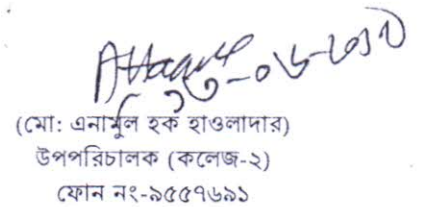 (মো: এনামুল হক হাওলাদার)
উপপরিচালক (কলেজ-২)
ফোন নং-৯৫৫৭৬৯১